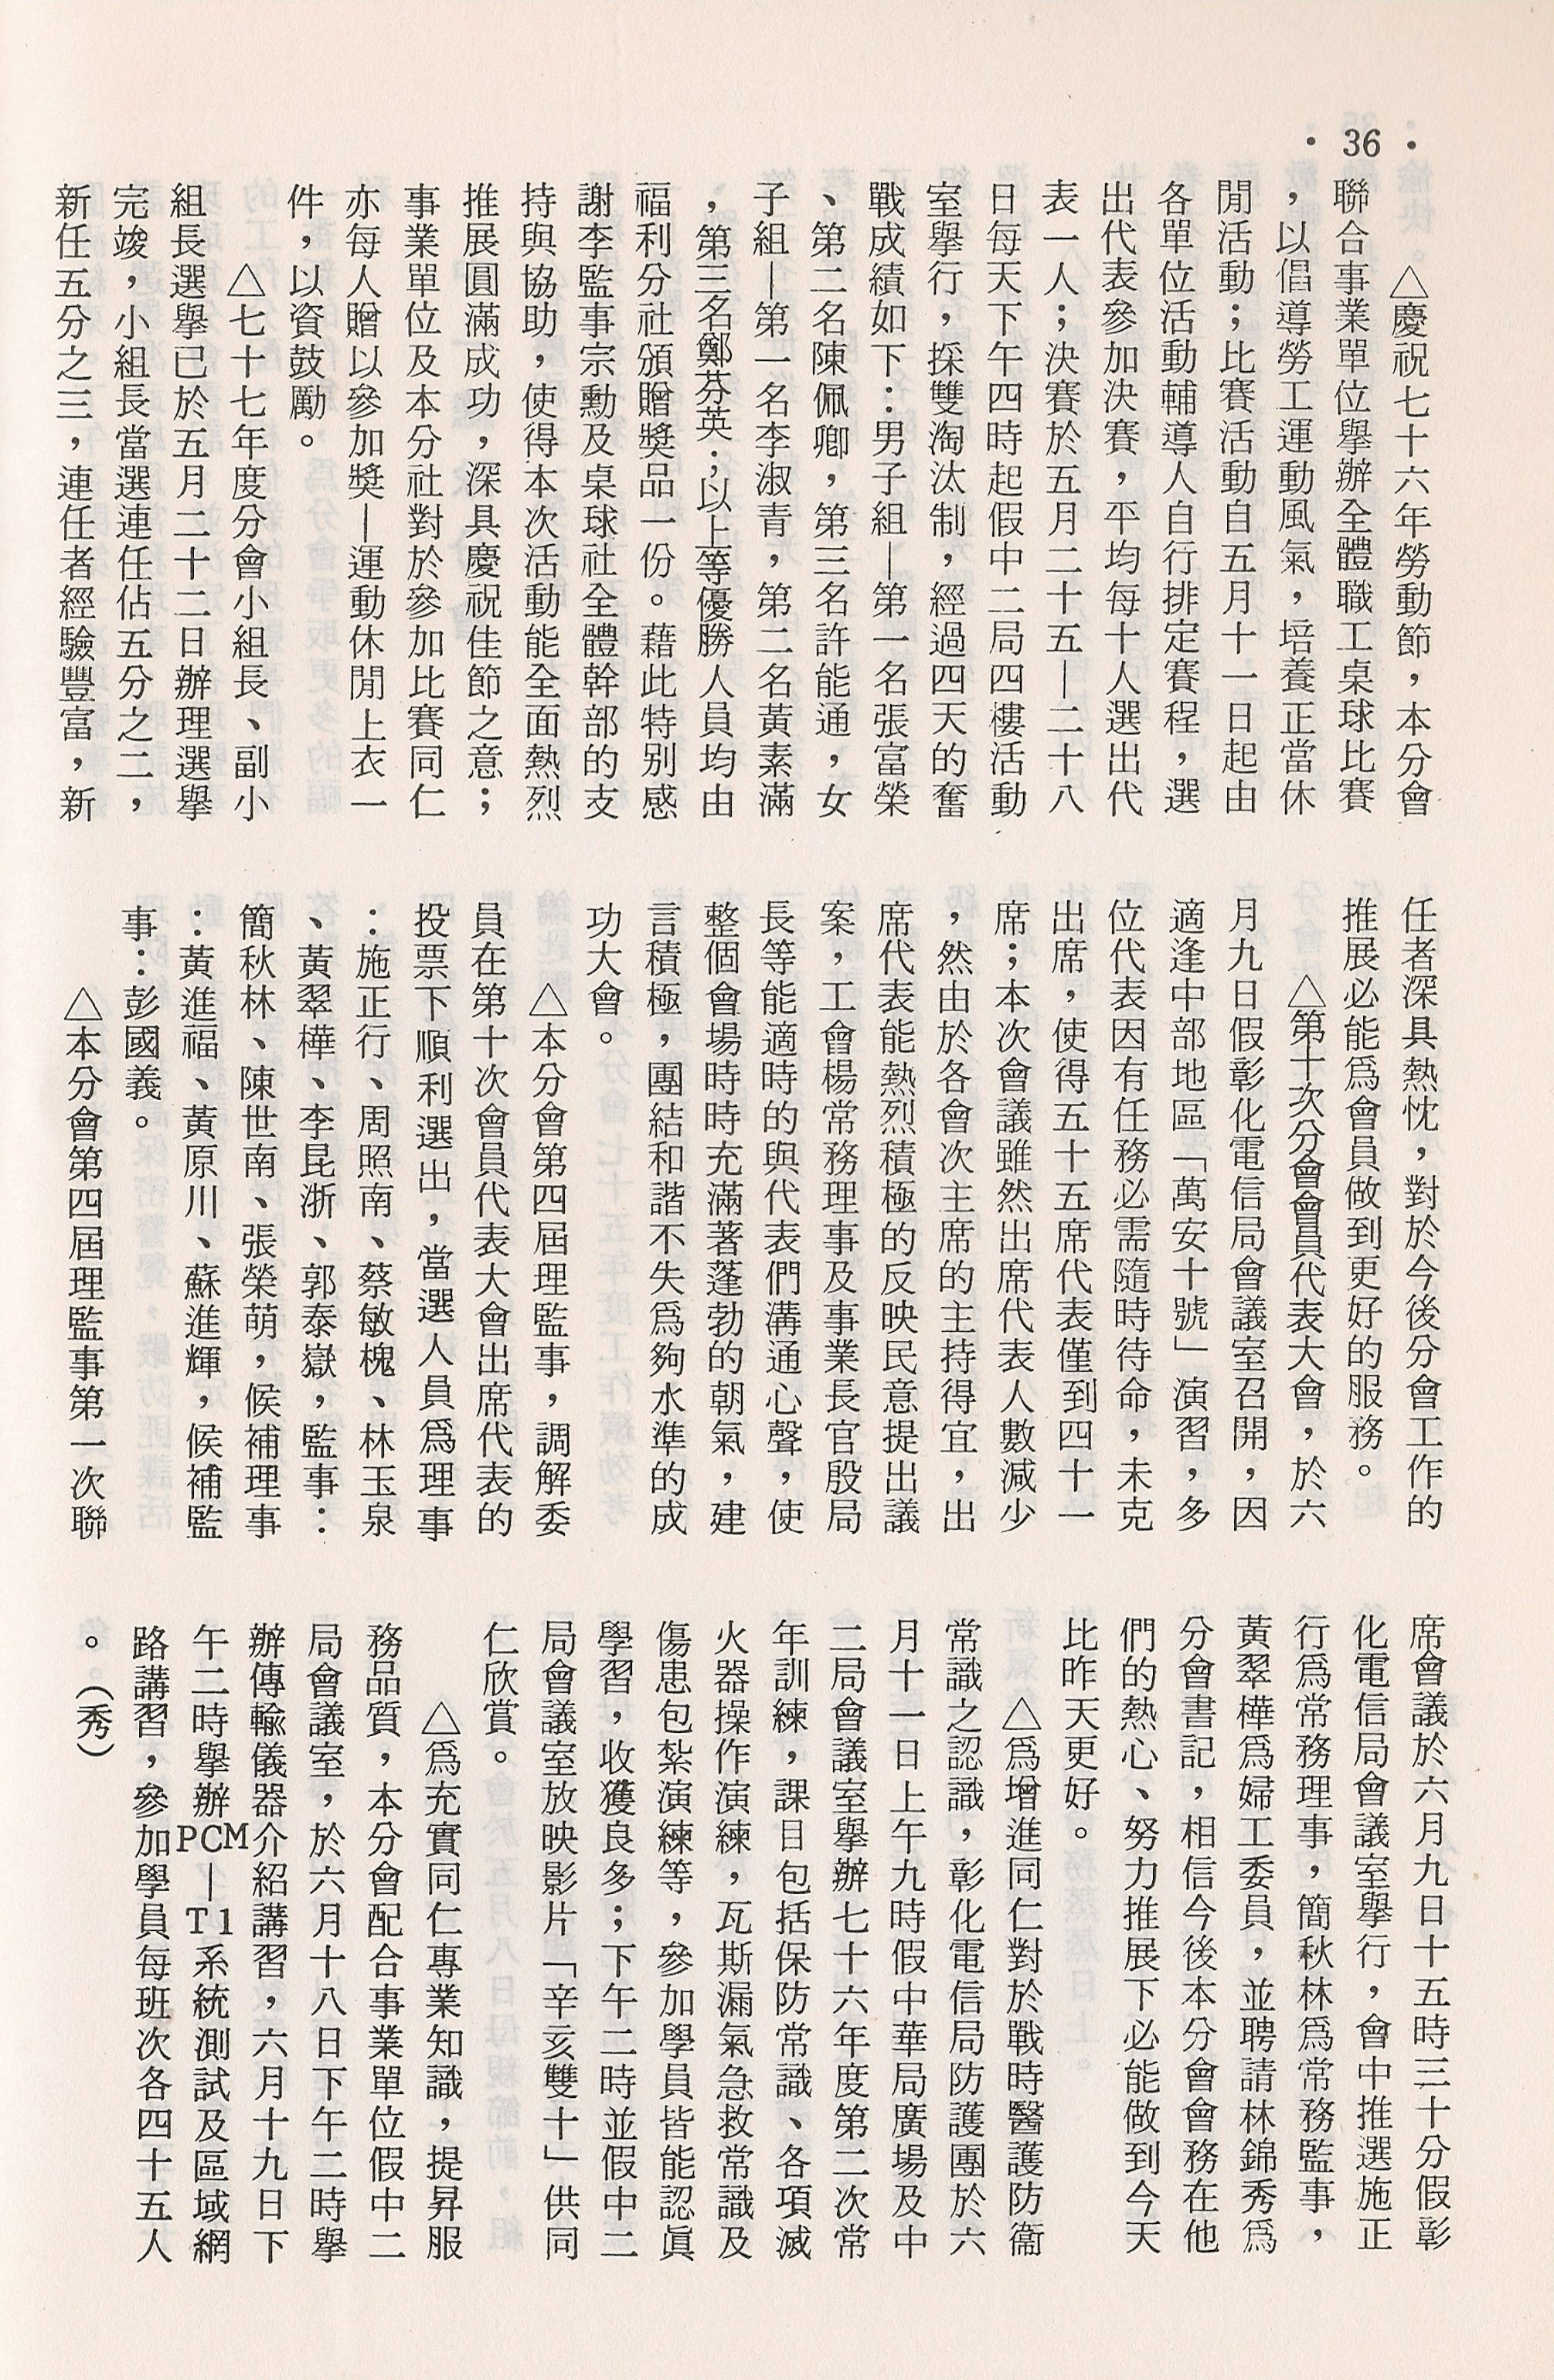 · 36 ·
△慶祝七十六年勞動節，本分會
聯合事業單位舉辦全體職工桌球比賽
，以倡導勞工運動風氣，培養正當休
閒活動；比賽活動自五月十一日起由
各單位活動輔導人自行排定賽程，選
出代表參加決賽，平均每十人選出代
表一人；決賽於五月二十五—二十八
日每天下午四時起假中二局四樓活動
室舉行，採雙淘汰制，經過四天的奮
戰成績如下：男子組—第一名張富榮
、第二名陳佩卿，第三名許能通，女
子組—第一名李淑青，第二名黃素滿
，第三名鄭芬英；以上等優勝人員均由
福利分社頒贈獎品一份。藉此特別感
謝李監事宗勳及桌球社全體幹部的支
持與協助，使得本次活動能全面熱烈
推展圓滿成功，深具慶祝佳節之意；
事業單位及本分社對於參加比賽同仁
亦每人贈以參加獎—運動休閒上衣一
件，以資鼓勵。
△七十七年度分會小組長、副小
組長選舉已於五月二十二日辦理選舉
完竣，小組長當選連任佔五分之二，
新任五分之三，連任者經驗豐富，新
任者深具熱忱，對於今後分會工作的
推展必能為會員做到更好的服務。
△第十次分會會員代表大會，於六
月九日假彰化電信局會議室召開，因
適逢中部地區「萬安十號」演習，多
位代表因有任務必需隨時待命，未克
出席，使得五十五席代表僅到四十一
席；本次會議雖然出席代表人數減少
，然由於各會次主席的主持得宜，出
席代表能熱烈積極的反映民意提出議
案，工會楊常務理事及事業長官殷局
長等能適時的與代表們溝通心聲，使
整個會場時時充滿著蓬勃的朝氣，建
言積極，團結和諧不失為夠水準的成
功大會。
△本分會第四屆理監事，調解委
員在第十次會員代表大會出席代表的
投票下順利選出，當選人員為理事
：施正行、周照南、蔡敏槐、林玉泉
、黃翠樺、李昆浙、郭泰嶽，監事：
簡秋林、陳世南、張榮萌，候補理事
：黃進福、黃原川、蘇進輝，候補監
事：彭國義。
△本分會第四屆理監事第一次聯
席會議於六月九日十五時三十分假彰
化電信局會議室舉行，會中推選施正
行為常務理事，簡秋林為常務監事，
黃翠樺為婦工委員，並聘請林錦秀為
分會書記，相信今後本分會會務在他
們的熱心、努力推展下必能做到今天
比昨天更好。
△為增進同仁對於戰時醫護防衞
常識之認識，彰化電信局防護團於六
月十一日上午九時假中華局廣場及中
二局會議室舉辦七十六年度第二次常
年訓練，課目包括保防常識、各項滅
火器操作演練，瓦斯漏氣急救常識及
傷患包紮演練等，參加學員皆能認眞
學習，收獲良多；下午二時並假中二
局會議室放映影片「辛亥雙十」供同
仁欣賞。
△為充實同仁專業知識，提昇服
務品質，本分會配合事業單位假中二
局會議室，於六月十八日下午二時舉
辦傳輸儀器介紹講習，六月十九日下
午二時舉辦PCM—T1系統測試及區域網
路講習，參加學員每班次各四十五人
。（秀）